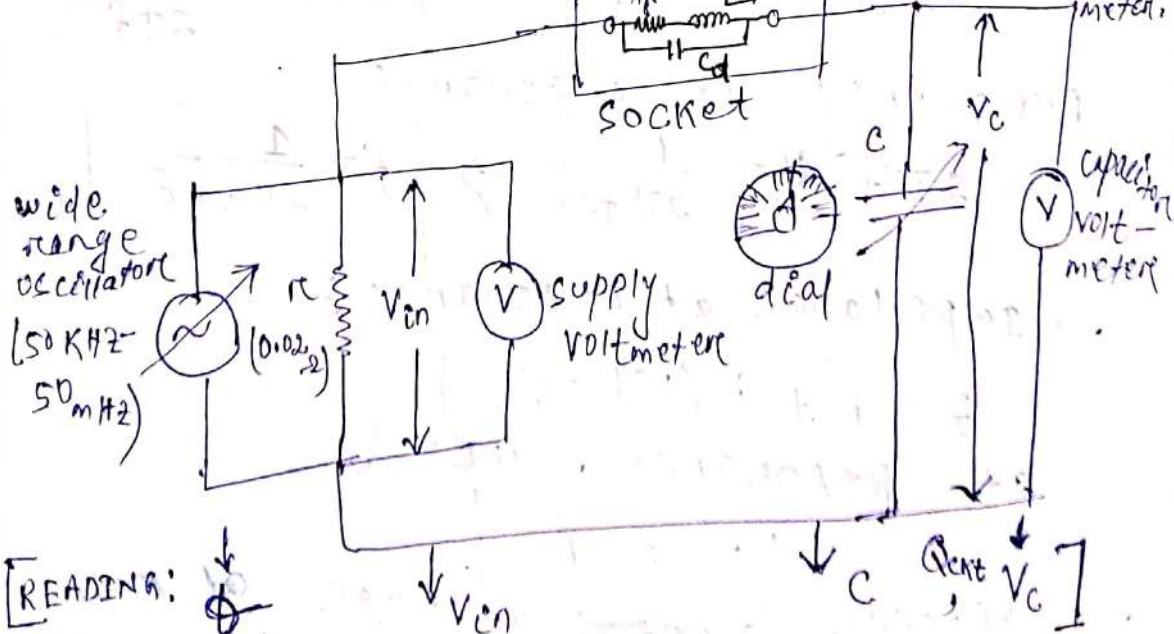 meter.
Cd
SOCKet
Vc
C
wide
range
oscillatore
(50 KHZ-
50 mHz)
r
(0.02Ω)
Vin
V
supply
voltmetere
dial
V
capacitor
volt-
metere
[READING:
Vin
C
, Vc ]